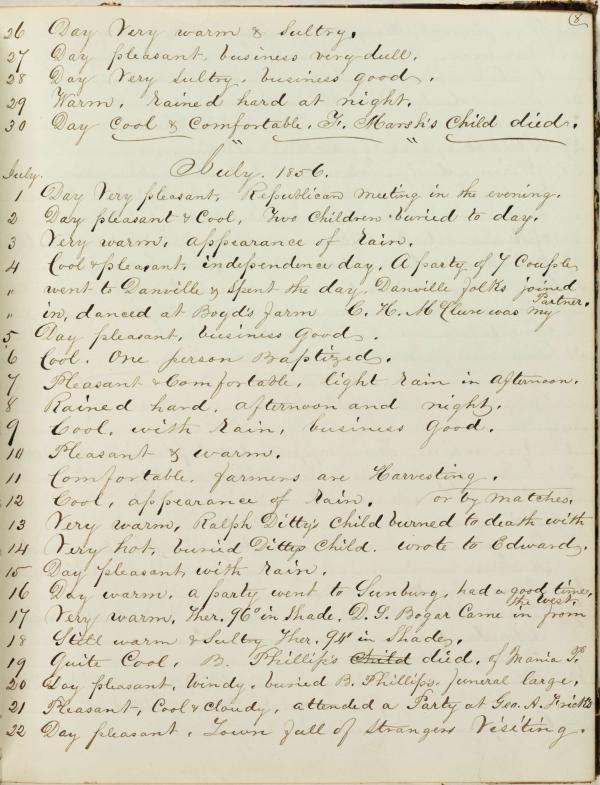 8
26 Day Very warm & Sultry.
27 Day pleasant. business very dull.
28 Day Very Sultry. business good.
29 Warm. rained hard at night.
30 Day Cool & Comfortable. F. Marsh's Child died.
July. 1856.
July.
1 Day Very pleasant, Republican meeting in the evening.
2 Day pleasant & Cool, Two Children buried to day.
3 Very warm. appearance of rain.
4 Cool & pleasant. independence day. A party of 7 Couples
" went to Danville & Spent the day. Danville folks joined
" in, danced at Boyd's farm C. H. McClure was my Partner.
5 Day pleasant, business good.
6 Cool. One person Baptized.
7 Pleasant & Comfortable, light rain in afternoon.
8 Rained hard. afternoon and night.
9 Cool. with rain, business good.
10 Pleasant & warm.
11 Comfortable. farmers are Harvesting.
12 Cool, appearance of rain. or by matches.
13 Very warm, Ralph Ditty's Child burned to death with
14 Very hot, buried Dittys Child. wrote to Edward.
15 Day pleasant with rain.
16 Day warm. a party went to Sunburg, had a good time,
17 Very warm. Ther. 96° in Shade. D. S. Bogar Came in from the West.
18 Still warm & Sultry Ther. 94° in Shade.
19 Quite Cool, B. Phillip's Child died. of Mania
20 Day pleasant, Windy. buried B. Phillips. funeral large.
21 Pleasant, Cool & Cloudy, attended a Party at Geo. A. Frick's
22 Day pleasant. Town full of Strangers Visiting.